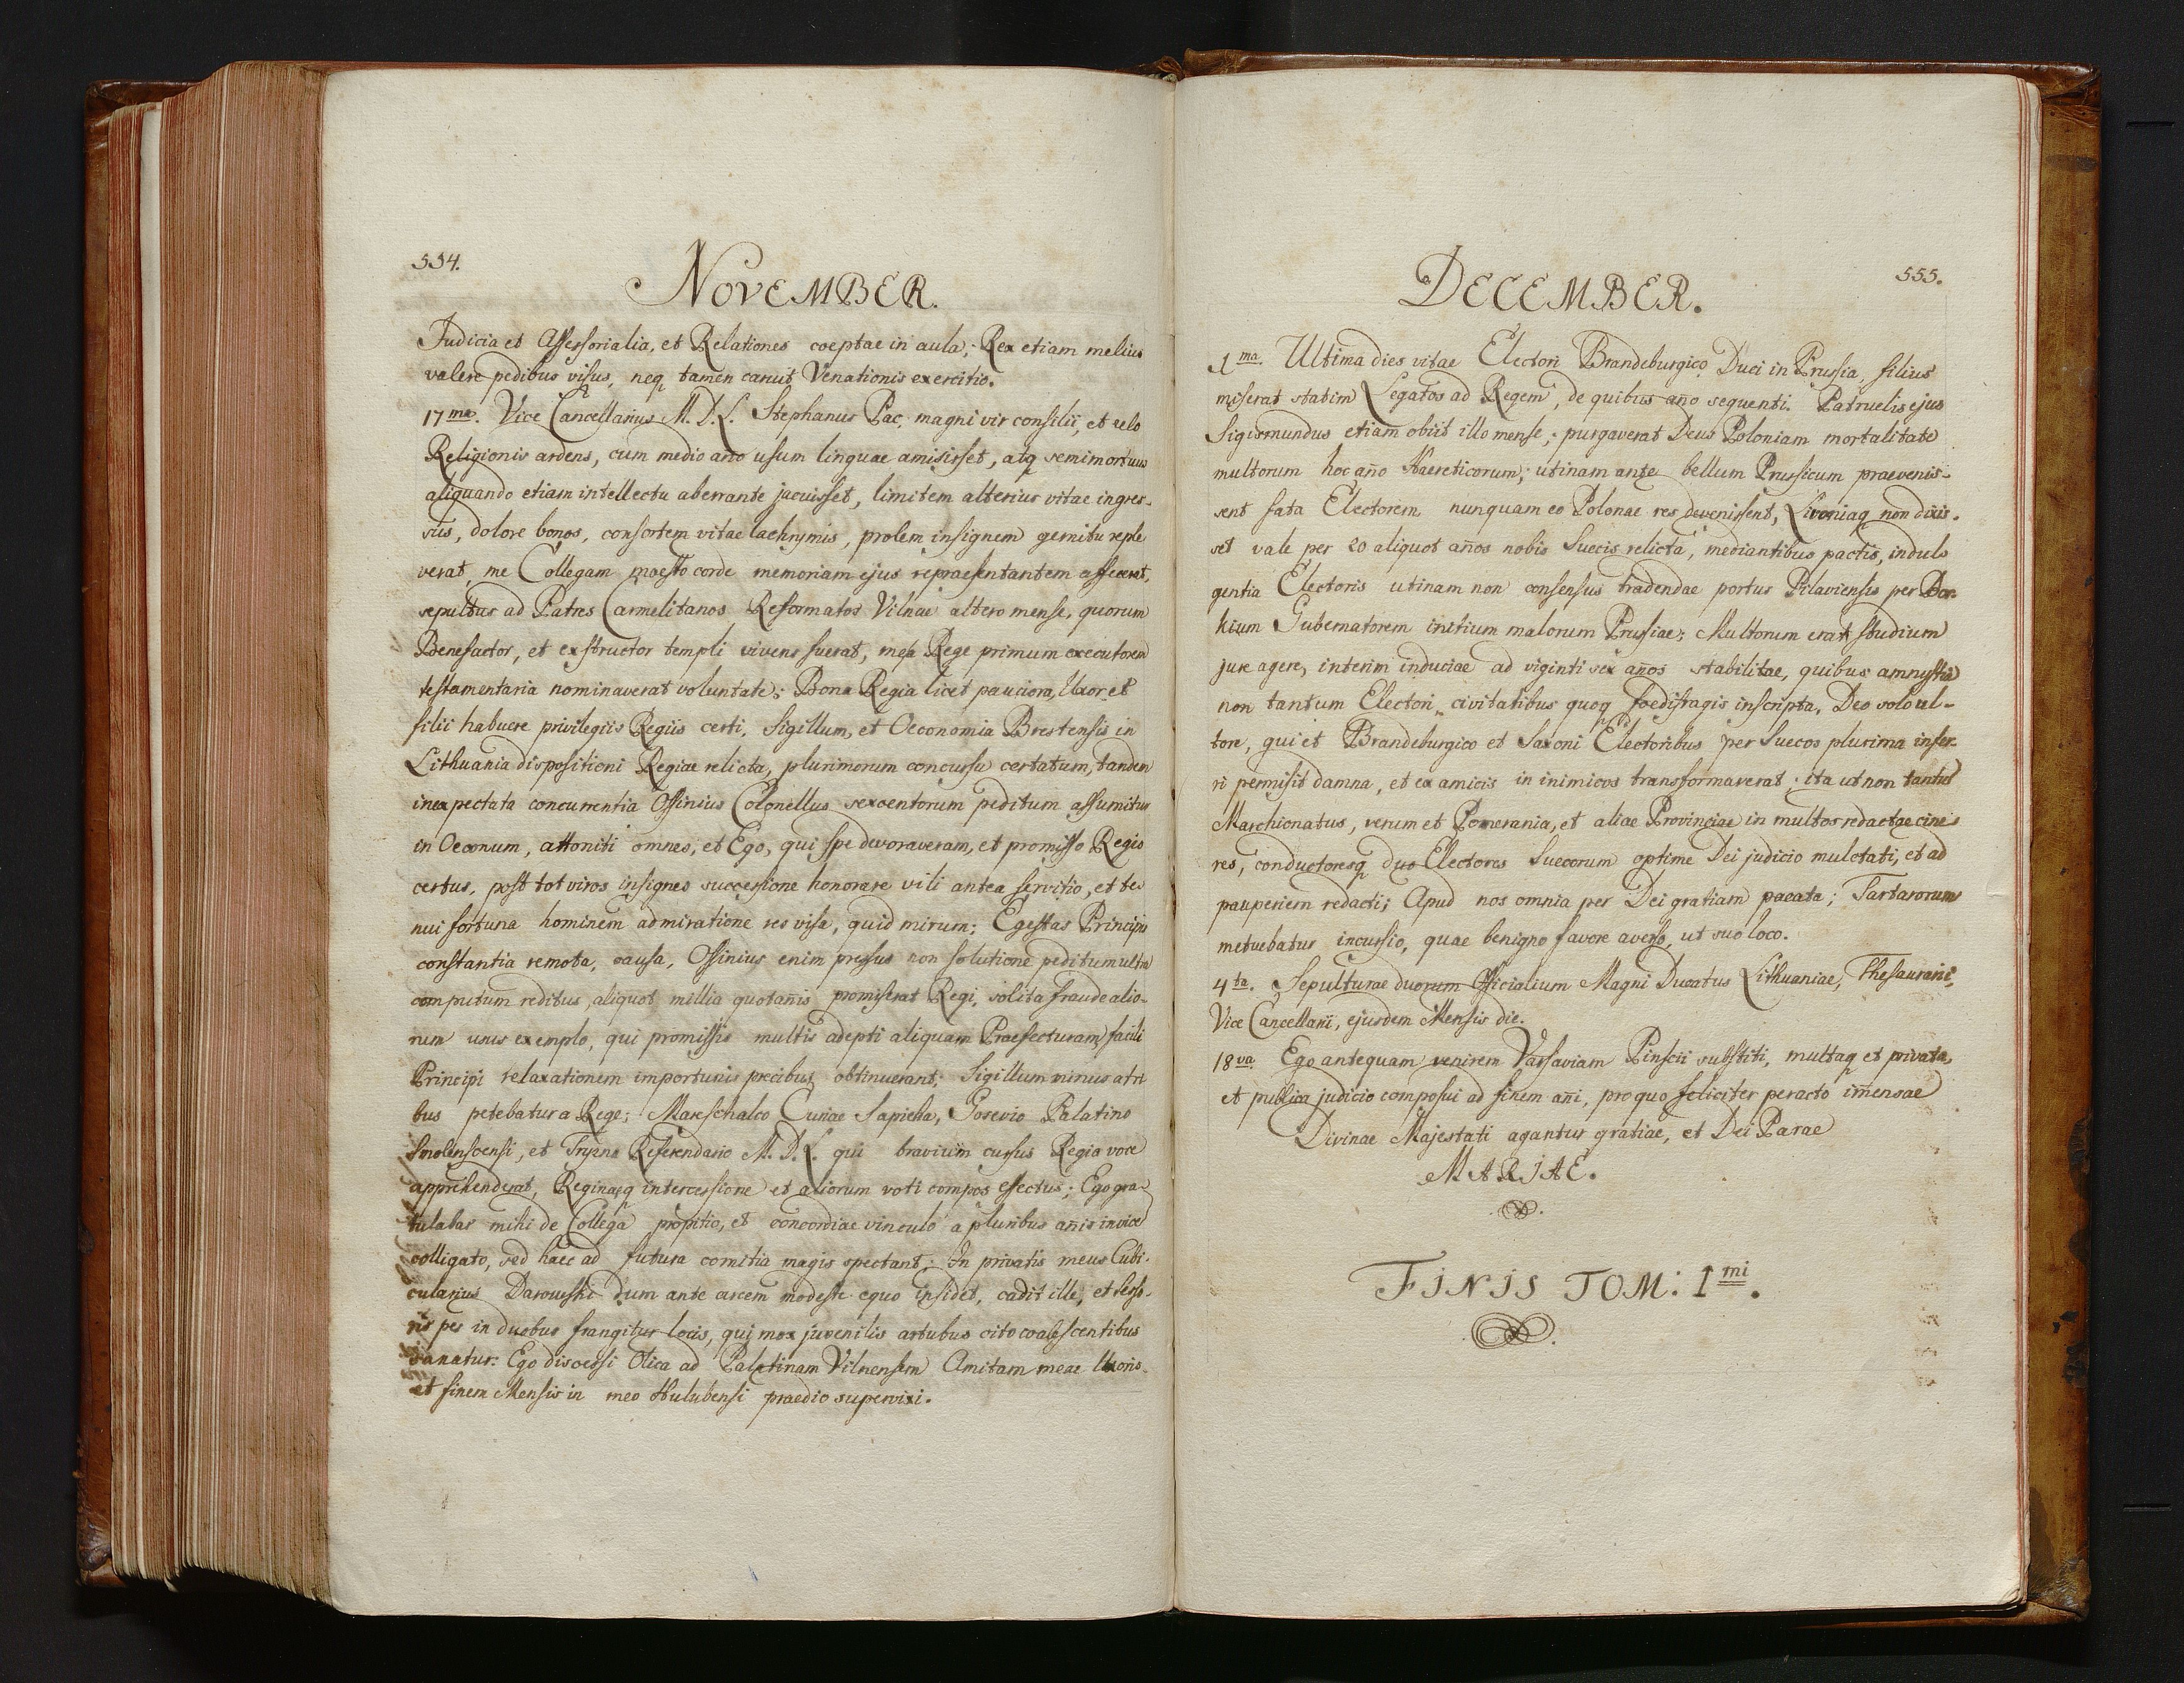 554.
NOVEMBER.
Judicia et Assessorialia, et Relationes coeptae in aula; Rex etiam melius
valere pedibus visus, neq tamen caruit Venationis exercitio.
17ma. Vice Cancellarius M. D. L. Stephanus Pac, magni vir consilii, et zelo
Religionis ardens, cum medio año usum linguae amisisset, atq semimortuus
aliquando etiam intellectu aberrante jacuisset, limitem alterius vitae ingres-
sus, dolore bonos, consortem vitae lachrymis, prolem insignem gemitu reple
verat, me Collegam maesto corde memoriam ejus repraesentantem affecerat,
sepultus ad Patres Carmelitanos Reformatos Vilnae altero mense, quorum
Benefactor, et exstructor templi vivens fuerat, meq Rege primum executorem
testamentaria nominaverat voluntate; Bona Regia licet pauciora, Uxor et
filii habuere privilegiis Regiis certi, Sigillum, et Oeconomia Brestensis in
Lithuania dispositioni Regiae relicta, plurimorum concursu certatum, tandem
inexpectata concurrentia Ossinius Colonellus sexcentorum peditum assumitur
in Oeconum, attoniti omnes, et Ego, qui spe devoraveram, et promisso Regio
certus, post tot viros insignes successione honorare vili antea servitio, et te-
nui fortuna hominem admiratione res visa, quid mirum; Egestas Principis
constantia remota, causa, Ossinius enim pressus non solutione peditum ultra
computum reditus, aliquot millia quotañis promiserat Regi, solita fraude alio-
rum usus exemplo, qui promissis multis adepti aliquam Praefecturam facili
Principi relaxationem importunis precibus obtinuerant; Sigillum minus a tri
bus petebatur a Rege; Mareschalco Curiae Sapieha, Gosevio Palatino
Smolenscensi, et Tryzna Referendario M. D. L. qui bravium cursus Regia voce
apprehenderat, Reginaeq intercessione et aliorum voti compos effectus; Ego gra-
tulabar mihi de Collega propitio, et concordiae vinculo a pluribus añis invice
colligato, sed haec ad futura comitia magis spectant; In privatis meus Cubi-
cularius Darowski dum ante arcem modeste equo insidet, cadit ille, et sesso-
ris pes in duobus frangitur locis, qui mox juvenilis artubus cito coalescentibus
sanatur: Ego discessi Olica ad Palatinam Vilnensem Amitam meae Uxoris
et finem Mensis in meo Hulubensi praedio supervixi.
555.
DECEMBER.
1ma. Ultima dies vitae Electori Brandeburgico Duci in Prussia, filius
miserat statim Legatos ad Regem, de quibus año sequenti. Patruelis ejus
Sigismundus etiam obiit illo mense; purgaverat Deus Poloniam mortalitate
multorum hoc año Haereticorum; utinam ante bellum Prussicum praevenis-
sent fata Electorem nunquam eo Polonae res devenissent, Livoniaq non dixis-
set vale per 20 aliquot años nobis Suecis relicta, mediantibus pactis, indul-
gentia Electoris utinam non consensus tradendae portus Pilaviensis per Bor-
kium Gubernatorem initium malorum Prussiae; Multorum erat studium
jure agere, interim induciae ad viginti sex años stabilitae, quibus amnystia
non tantum Electori, civitatibus quoq foedifragis inscripta, Deo solo ul-
tore, qui et Brandeburgico et Saxoni Electoribus per Suecos plurima infer-
ri permisit damna, et ex amicis in inimicos transformaverat; ita ut non tantu
Marchionatus, verum et Pomerania, et aliae Provinciae in multos redactae cine-
res, conductoresq duo Electores Suecorum optime Dei judicio mulctati, et ad
pauperiem redacti; Apud nos omnia per Dei gratiam pacata; Tartarorum
metuebatur incursio, quae benigno favore averso, ut suo loco.
4ta. Sepulturae duorum Officialium Magni Ducatus Lithuaniae, Thesaurarii,
Vice Cancellarii, ejusdem Mensis die.
18va. Ego antequam venirem Varsaviam Pinscii substiti, multaq et privata,
et publica judicio composui ad finem añi, pro quo feliciter peracto im̃ensae
Divinae Majestati agantur gratiae, et Dei Parae
MARIAE.
FINIS TOM: Imi.